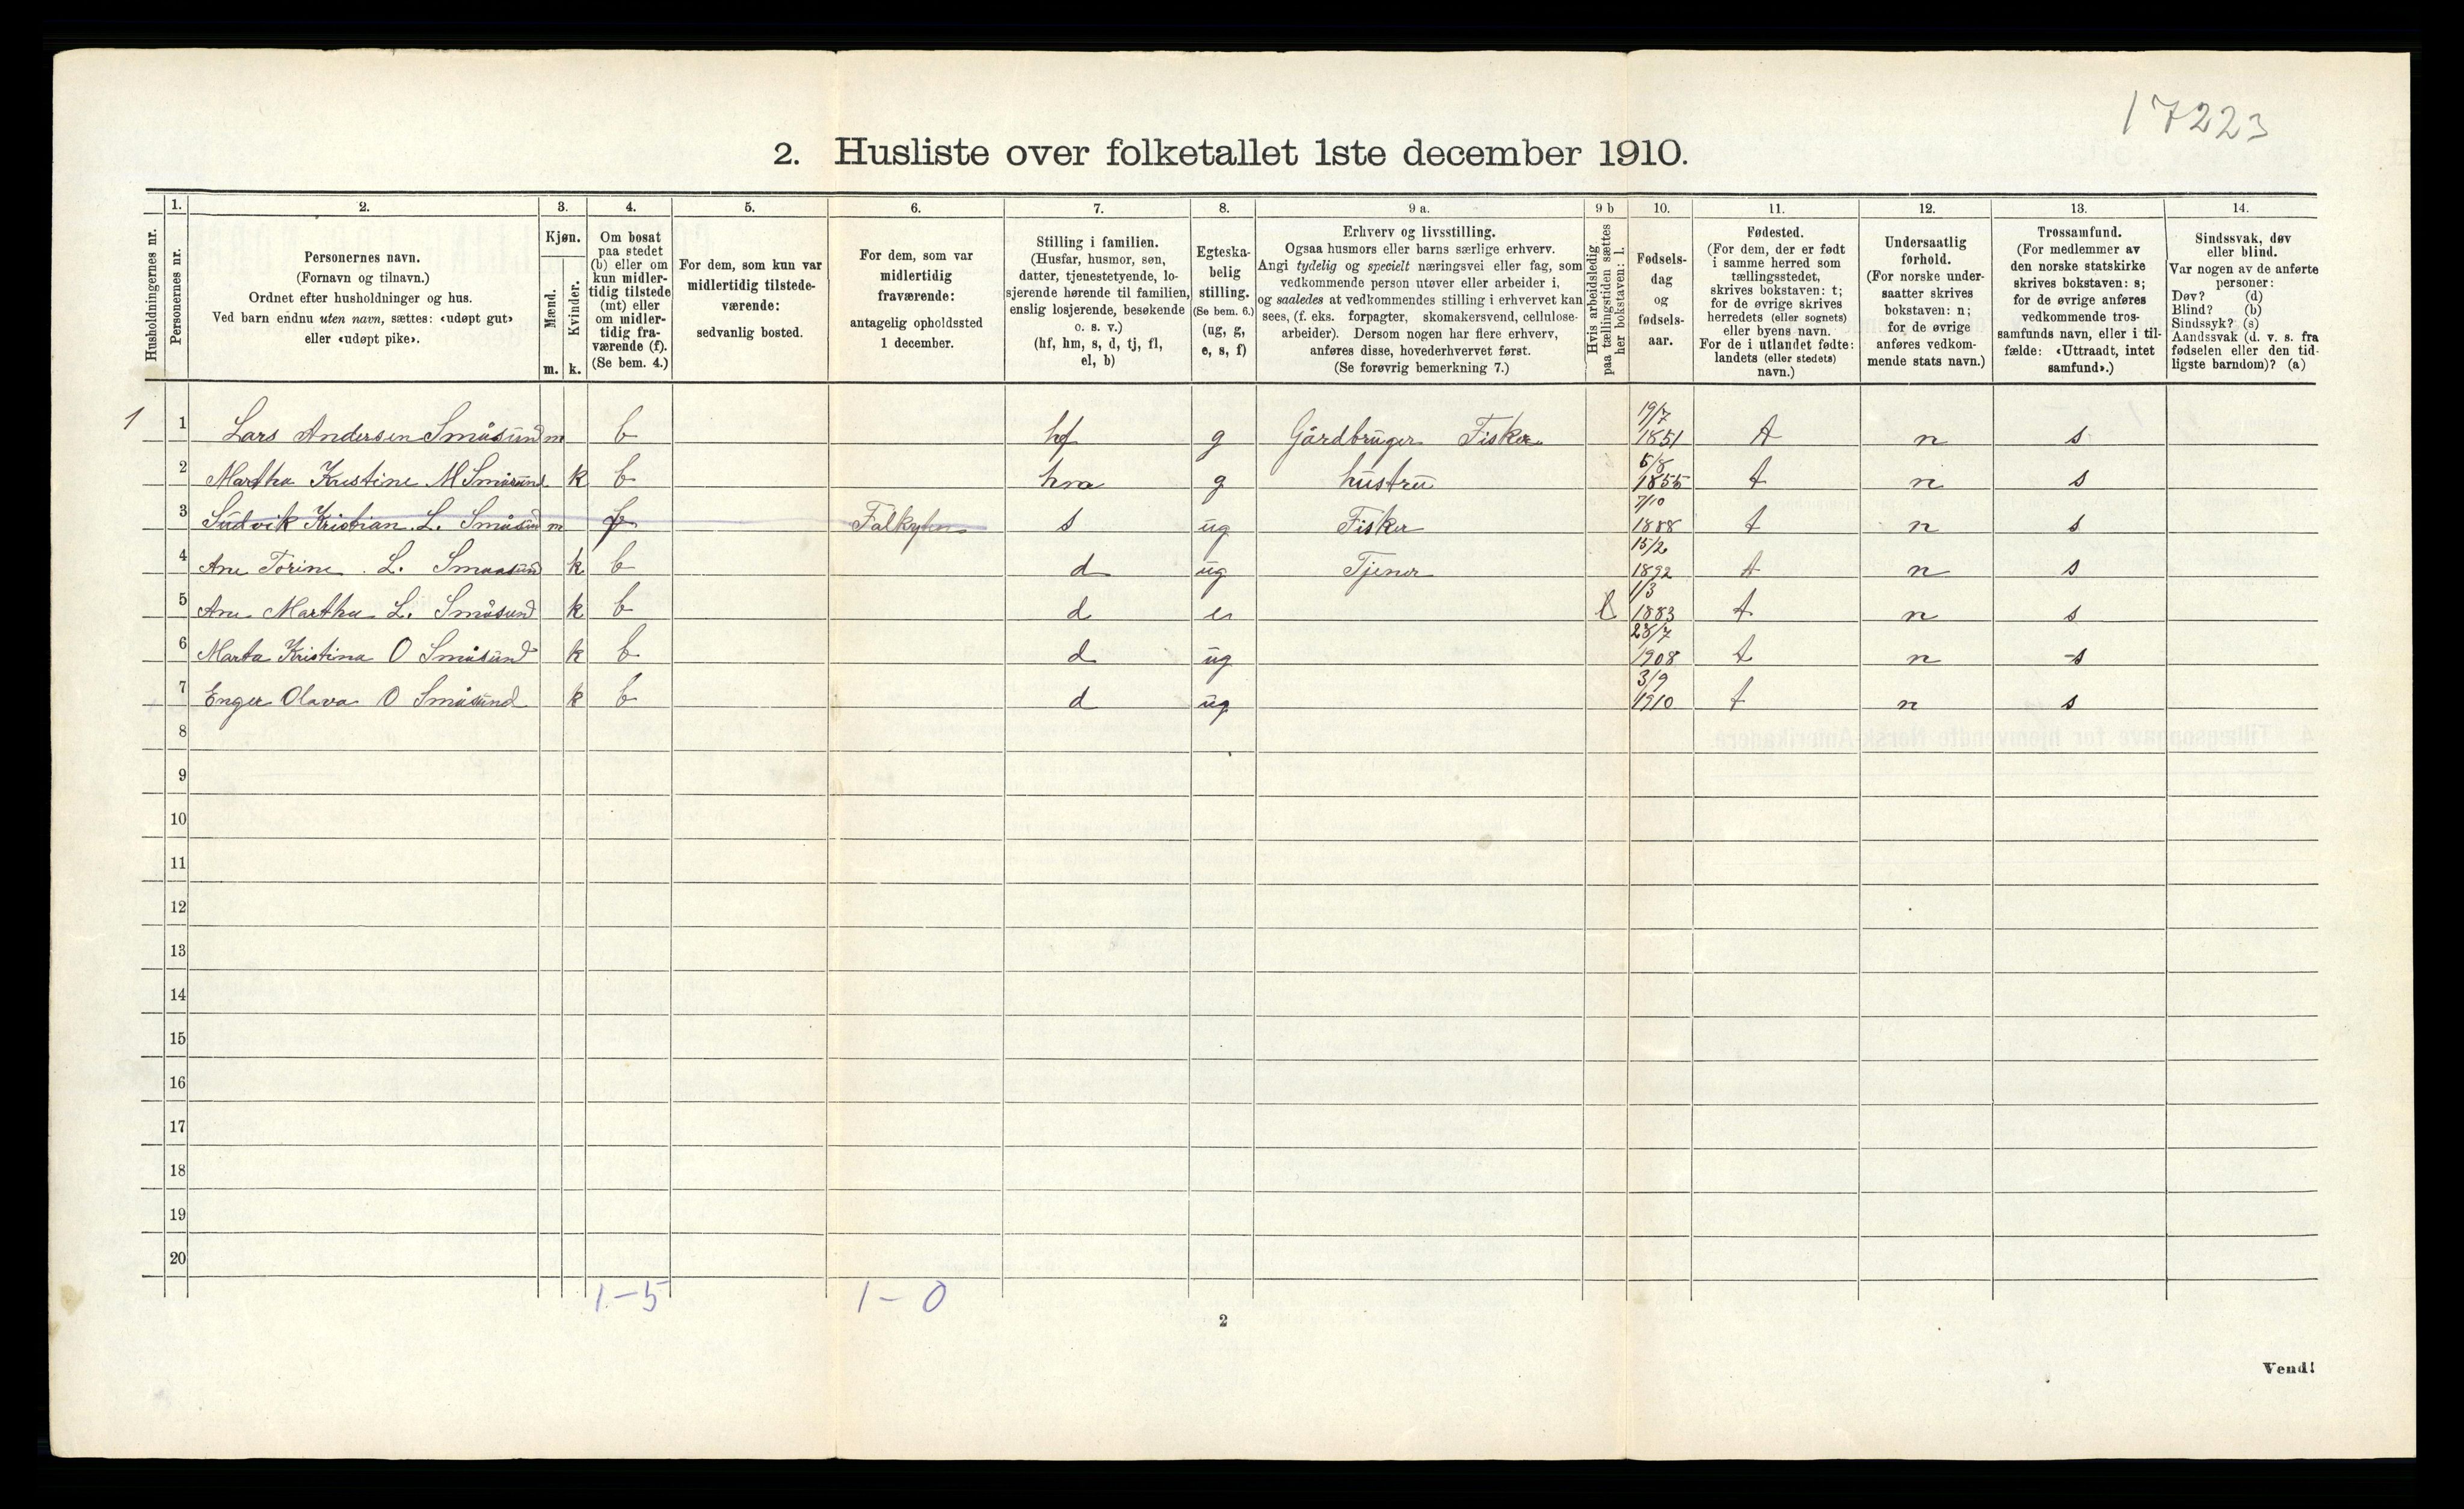 17223
2. Husliste over folketallet 1ste december 1910.
Husholdningernes nr.
1.
Personernes nr.
2.
Personernes navn.
(Fornavn og tilnavn.)
Ordnet efter husholdninger og hus.
Ved barn endnu uten navn, sættes: «udøpt gut»
eller «udøpt pike».
3.
Kjøn.
Mænd.
Kvinder.
m. k.
4.
Om bosat
paa stedet
(b) eller om
kun midler-
tidig tilstede
(mt) eller
om midler-
tidig fra-
værende (f).
(Se bem. 4.)
5.
For dem, som kun var
midlertidig tilstede-
værende:
sedvanlig bosted.
6.
For dem, som var
midlertidig
fraværende:
antagelig opholdssted
1 december.
7.
Stilling i familien.
(Husfar, husmor, søn,
datter, tjenestetyende, lo-
sjerende hørende til familien,
enslig losjerende, besøkende
o. s. v.)
(hf, hm, s, d, tj, fl,
el, b)
8.
Egteska-
belig
stilling.
(Se bem. 6.)
(ug, g,
e, s, f)
9 a.
Erhverv og livsstilling.
Ogsaa husmors eller barns særlige erhverv.
Angi tydelig og specielt næringsvei eller fag, som
vedkommende person utøver eller arbeider i,
og saaledes at vedkommendes stilling i erhvervet kan
sees, (f. eks. forpagter, skomakersvend, cellulose-
arbeider). Dersom nogen har flere erhverv,
anføres disse, hovederhvervet først.
(Se forøvrig bemerkning 7.)
9 b
Hvis arbeidsledig
paa tællingstiden sættes
her bokstaven: l.
10.
Fødsels-
dag
og
fødsels-
aar.
11.
Fødested.
(For dem, der er født
i samme herred som
tællingsstedet,
skrives bokstaven: t;
for de øvrige skrives
herredets (eller sognets)
eller byens navn.
For de i utlandet fødte:
landets (eller stedets)
navn.)
12.
Undersaatlig
forhold.
(For norske under-
saatter skrives
bokstaven: n;
for de øvrige
anføres vedkom-
mende stats navn.)
13.
Trossamfund.
(For medlemmer av
den norske statskirke
skrives bokstaven: s;
for de øvrige anføres
vedkommende tros-
samfunds navn, eller i til-
fælde: «Uttraadt, intet
samfund».)
14.
Sindssvak, døv
eller blind.
Var nogen av de anførte
personer:
Døv? (d)
Blind? (b)
Sindssyk? (s)
Aandssvak (d. v. s. fra
fødselen eller den tid-
ligste barndom)? (a)
1 1 Lars Andersen Småsund m b hf g Gårdbruger Fisker 19/7 1851 t n s
2 Martha Kristine M Småsund k b hm g hustru 5/8 1855 t n s
3 Ludvik Kristian L. Småsund m f s ug Fisker 7/10 1888 t n s
4 Ane Torine L. Smaasund k b d ug Tjener 15/2 1892 t n s
5 Ane Martha L. Småsund k b d e l 1/3 1883 t n s
6 Marta Kristina O Småsund k b d ug 28/7 1908 t n s
7 Enger Olava O Småsund k b d ug 3/9 1910 t n s
8
9
10
11
12
13
14
15
16
17
18
19
20
1-5 1-0
2
Vend!